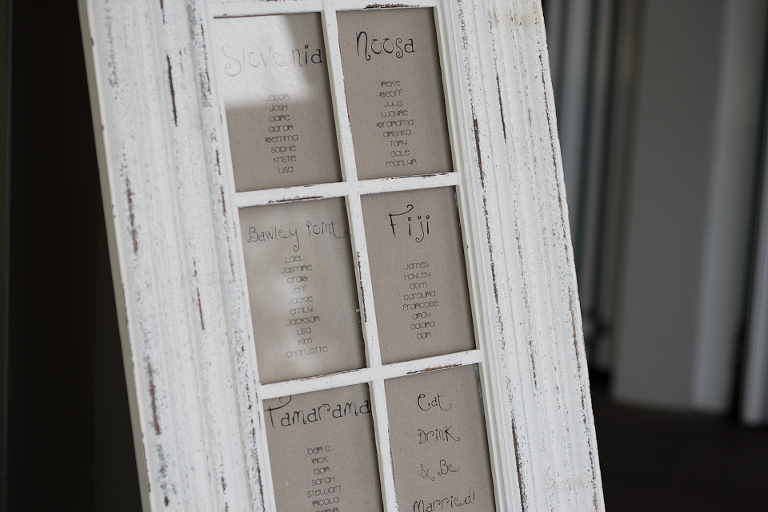 Slovenia
Jason
Josh
Jaime
aaron
Gemma
Sophie
Kristie
Lisa
Noosa
Mike
Geoff
Julia
Wayne
Grandma
Mishka
Tony
dale
Marilyn
Bawley Point
Jasmine
Craig
Jeff
Jackie
emily
Jackson
Lisa
Kim
Charlotte
Fiji
James
Hayley
Dom
Carolina
Francoise
andy
Tamarama
Dom C
Nick
Sarah
Stewart
Nicola
Eat
Drink
& Be
Married!